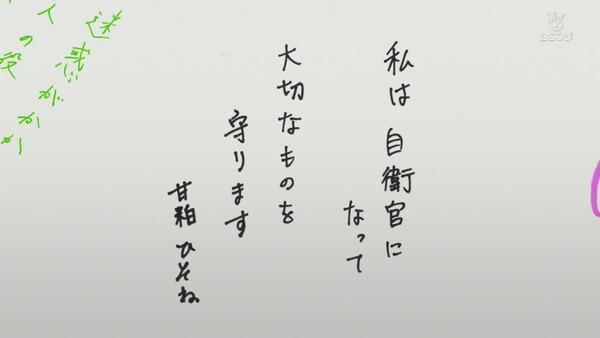 私は自衛官に
なって
大切なものを
守ります
甘粕ひそね
迷惑がかか
人の役
BSフジ